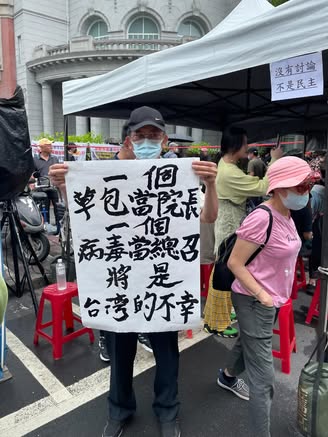 沒有討論
不是民主
一個
草包當院長
一個
病毒當總召
將是
台灣的不幸